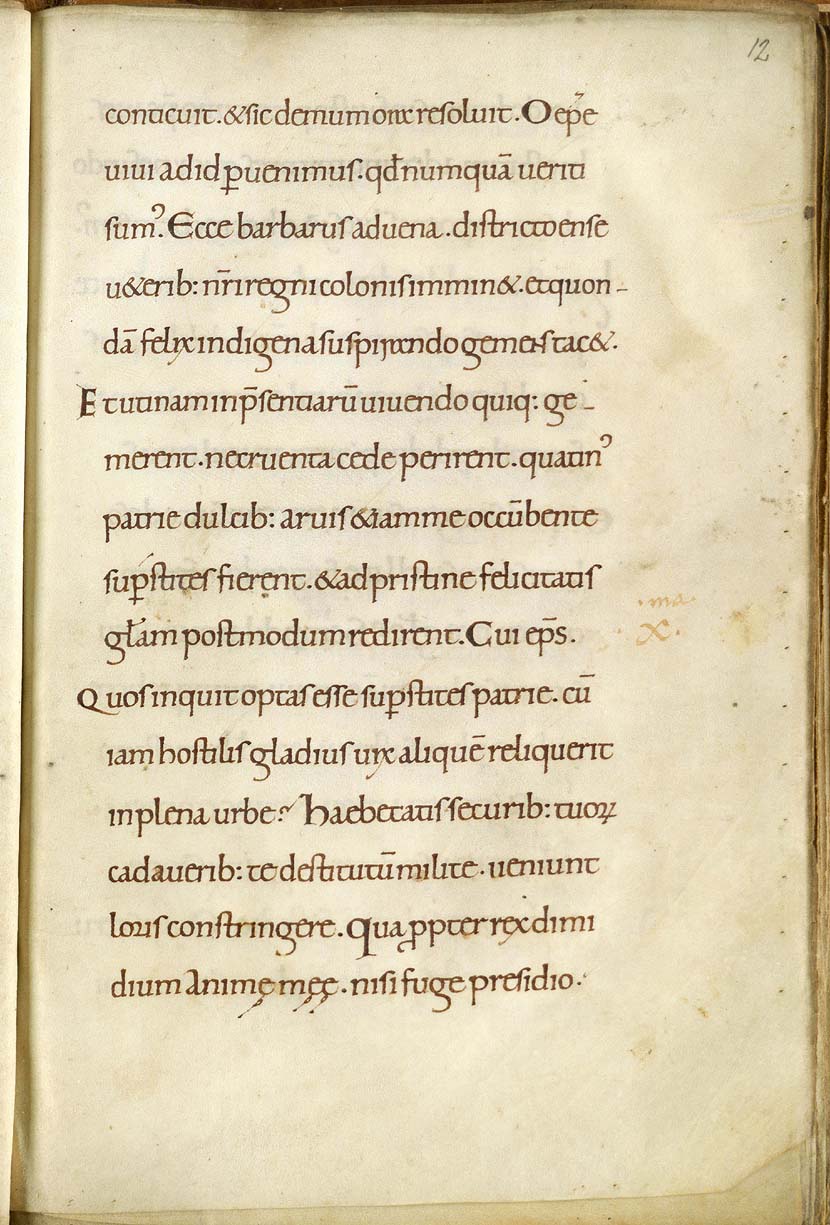 12
conticuit. &sic demum ora resoluit. O ep̄e
uiui ad id ꝑuenimus. qd̄ numquā ueriti
sumꝰ. Ecce barbarus aduena. districto ense
u&erib: nr̄i regni colonis immin&. et quon-
dā felix indigena suspirando gemens tac&.
Et utinam in p̄sentiarū uiuendo quiq: ge-
merent. ne cruenta cede perirent. quatinꝰ
patrie dulcib: aruis & iam me occūbente
suꝑstites fierent. & ad pristine felicitatis
gl̄am postmodum redirent. Cui ep̄s.
Quos inquit optas esse suꝑstites patrie. cū
iam hostilis gladius uix aliquē reliquerit
in plena urbe? Haebetatis securib: tuoꝝ
cadauerib: te destitutū milite. ueniunt
loris constringere. Qua ꝓpter rex dimi
dium animę męę. nisi fuge presidio.
.ma.
X.